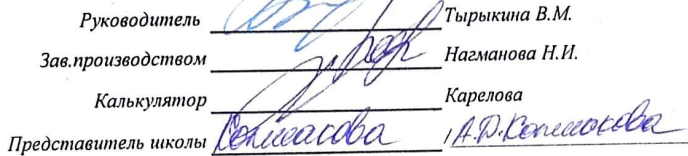 Руководитель Тырыкина В.М.
Зав.производством Нагманова Н.И.
Калькулятор Карелова
Представитель школы / А.Д.